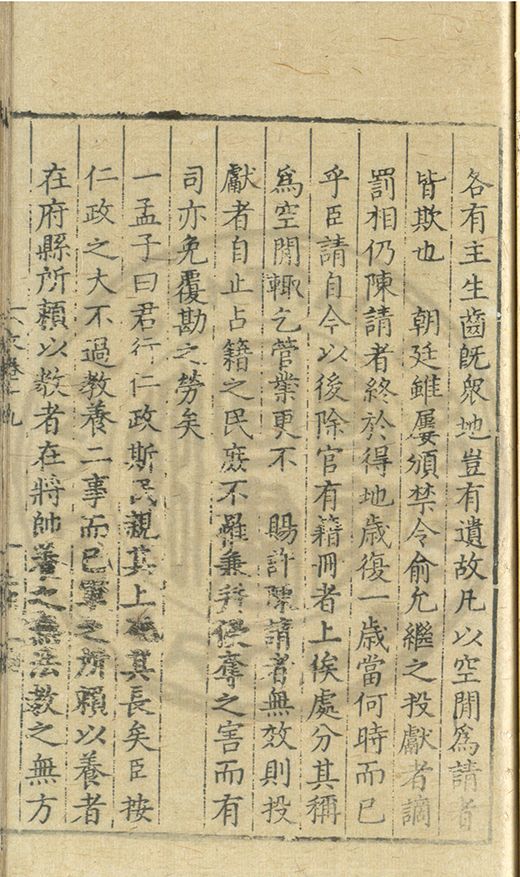 各有主生齒旣衆地豈有遺故凡以空閒爲請者
皆欺也　朝廷雖屢頒禁令俞允繼之投獻者謫
罰相仍陳請者終於得地歲復一歲當何時而已
乎臣請自今以後除官有籍冊者上俟處分其稱
爲空閒輙乞管業更不　賜許陳請者無效則投
獻者自止占籍之民庶不罹兼并侵奪之害而有
司亦免覆勘之勞矣
一孟子曰君行仁政斯民親其上死其長矣臣按
仁政之大不過教養二事而已軍之所賴以養者
在府縣所頼以教者在將帥養之無法教之無方